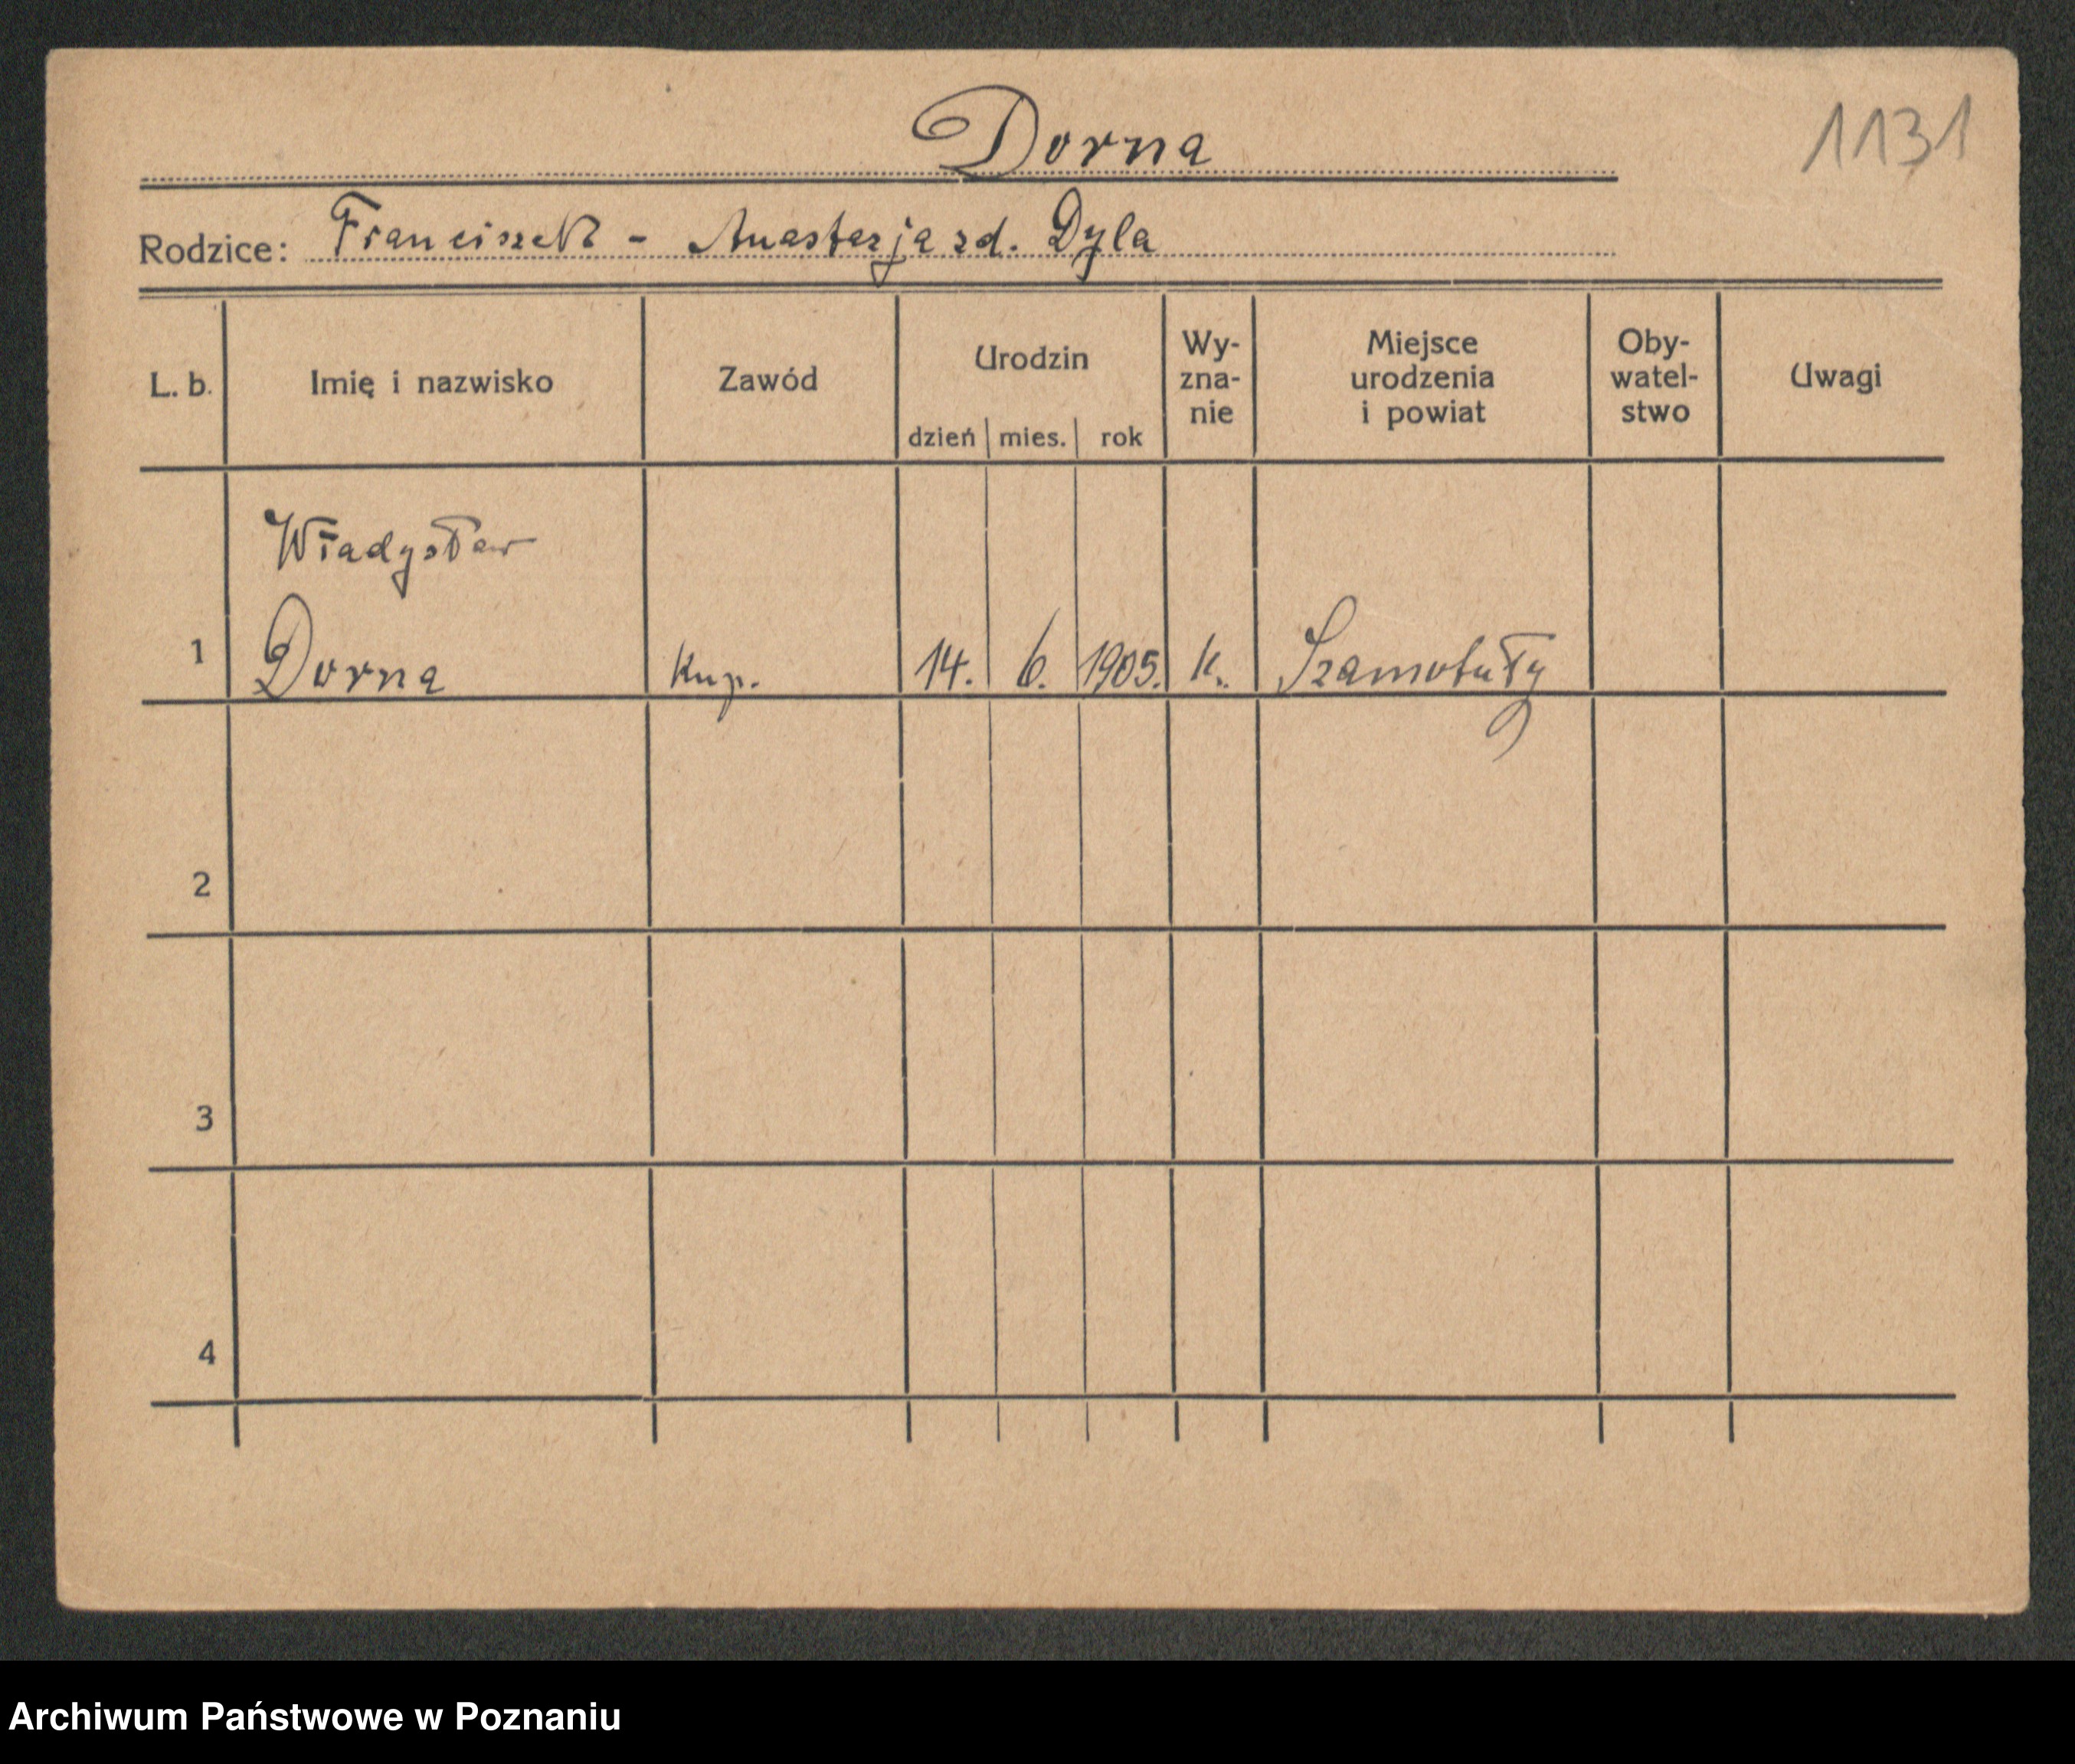 Dorna
1131
Rodzice: Franciszek - Anastazja zd. Dyla
L. b.
Imię i nazwisko
Zawód
Urodzin
dzień mies. rok
Wy-
zna-
nie
Miejsce
urodzenia
i powiat
Oby-
watel-
stwo
Uwagi
Władysław
1 Dorna Kup. 14. 6. 1905. K. Szamotuły
2
3
4
Archiwum Państwowe w Poznaniu